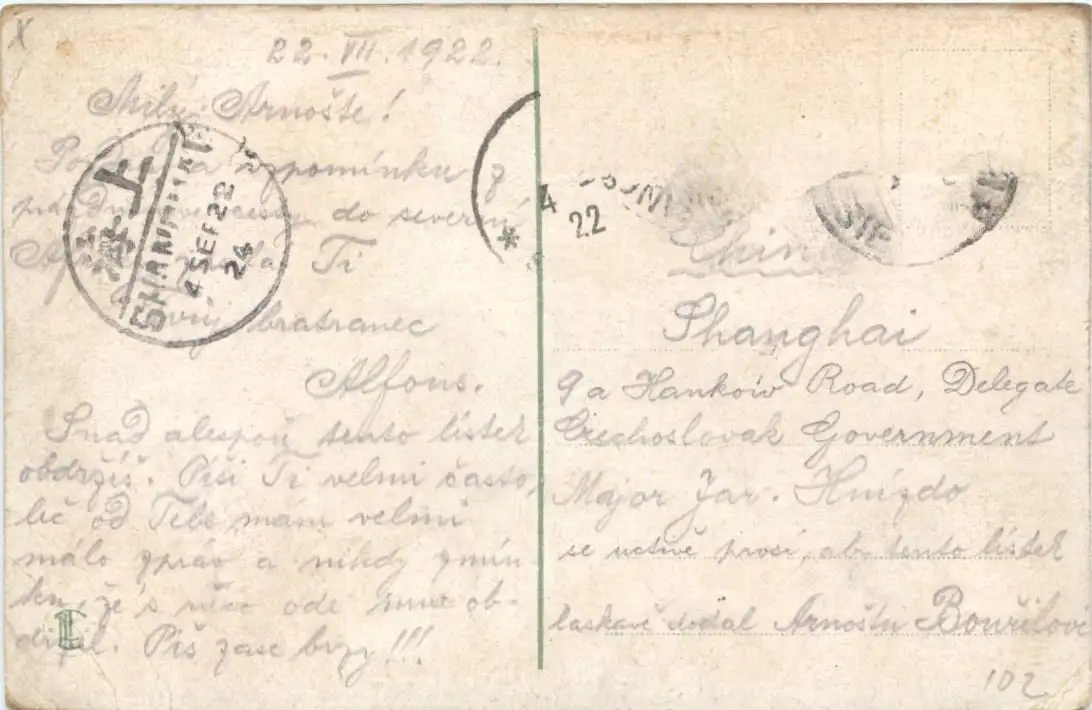 X
22. VII. 1922.
Milý Arnošte!
vzpomínku z
do severní
Ti
bratranec
Alfons.
Snad alespoň tento lístek
obdržíš. Píši Ti velmi často,
leč od Tebe mám velmi
málo zpráv a nikdy zmín-
ku, že's něco ode mne ob-
držel. Piš zase brzy!!!
SHANGHAI
4 SEP 22
24
4
22
*
China
Shanghai
9a Hankow Road, Delegate
Czechoslovak Government
Major Jar. Hnízdo
se uctivě prosí, aby tento lístek
laskavě dodal Arnoštu Bouřilovi
102